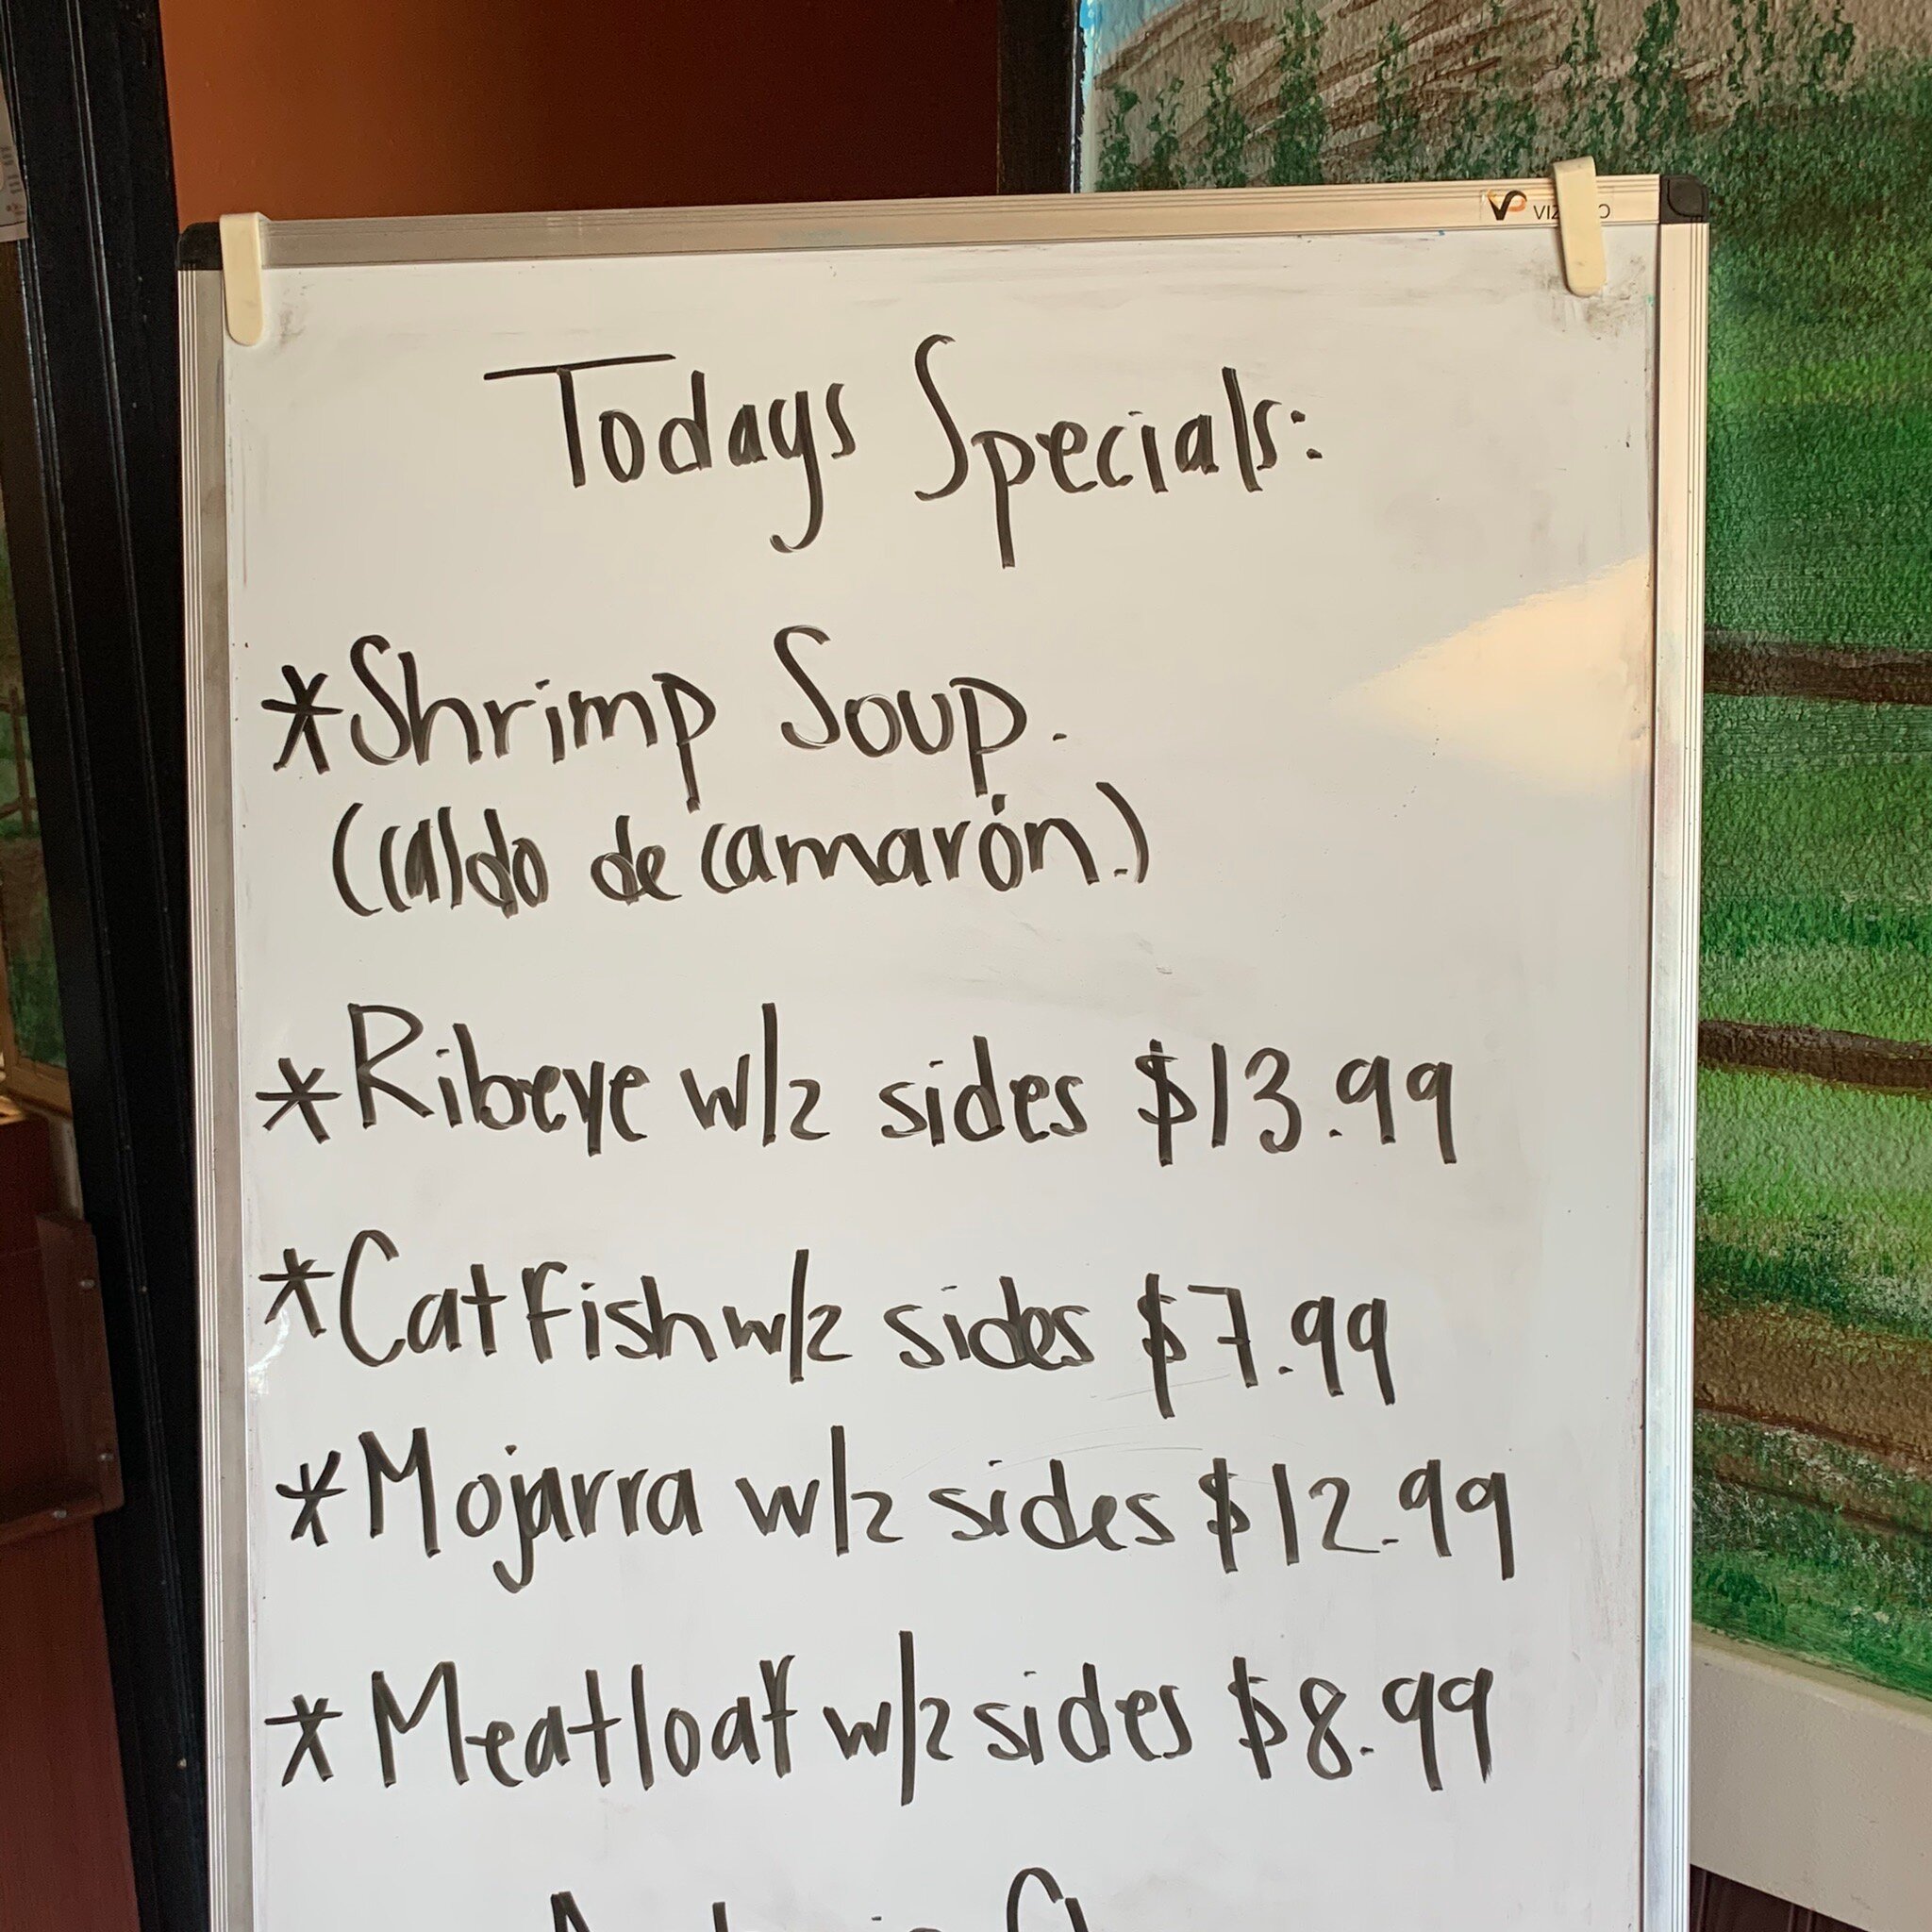 Todays Specials:
*Shrimp Soup.
(caldo de camarón.)
*Ribeye w/2 sides $13.99
*Catfish w/2 sides $7.99
*Mojarra w/2 sides $12.99
*Meatloaf w/2 sides $8.99